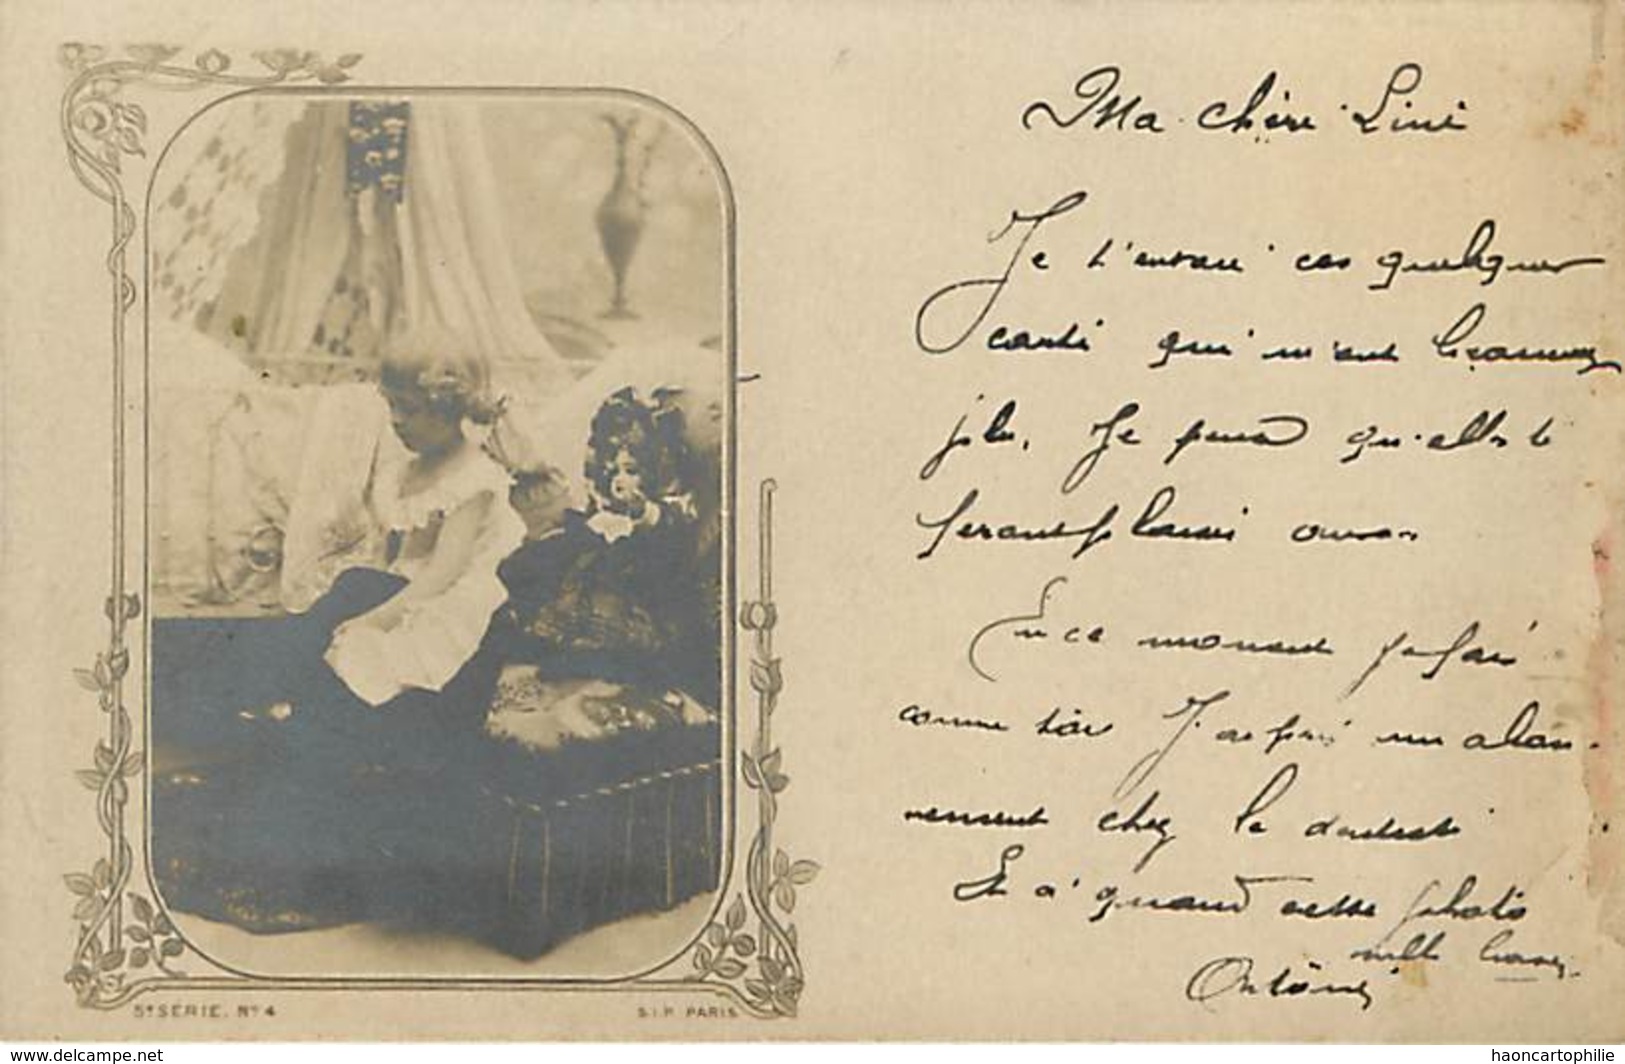 Ma chère Line
Je t'envoie ces quelques
carte qui m'ont beaucoup
plu. Je pense qu'elle te
feront plaisir aussi
En ce moment je fais
comme toi J'ai pris un abon-
nement chez le dentiste
Et à quand cette photo
mille baisers
Antoine
5e SERIE. No 4
S.I.P. PARIS
www.delcampe.net
haoncartophilie